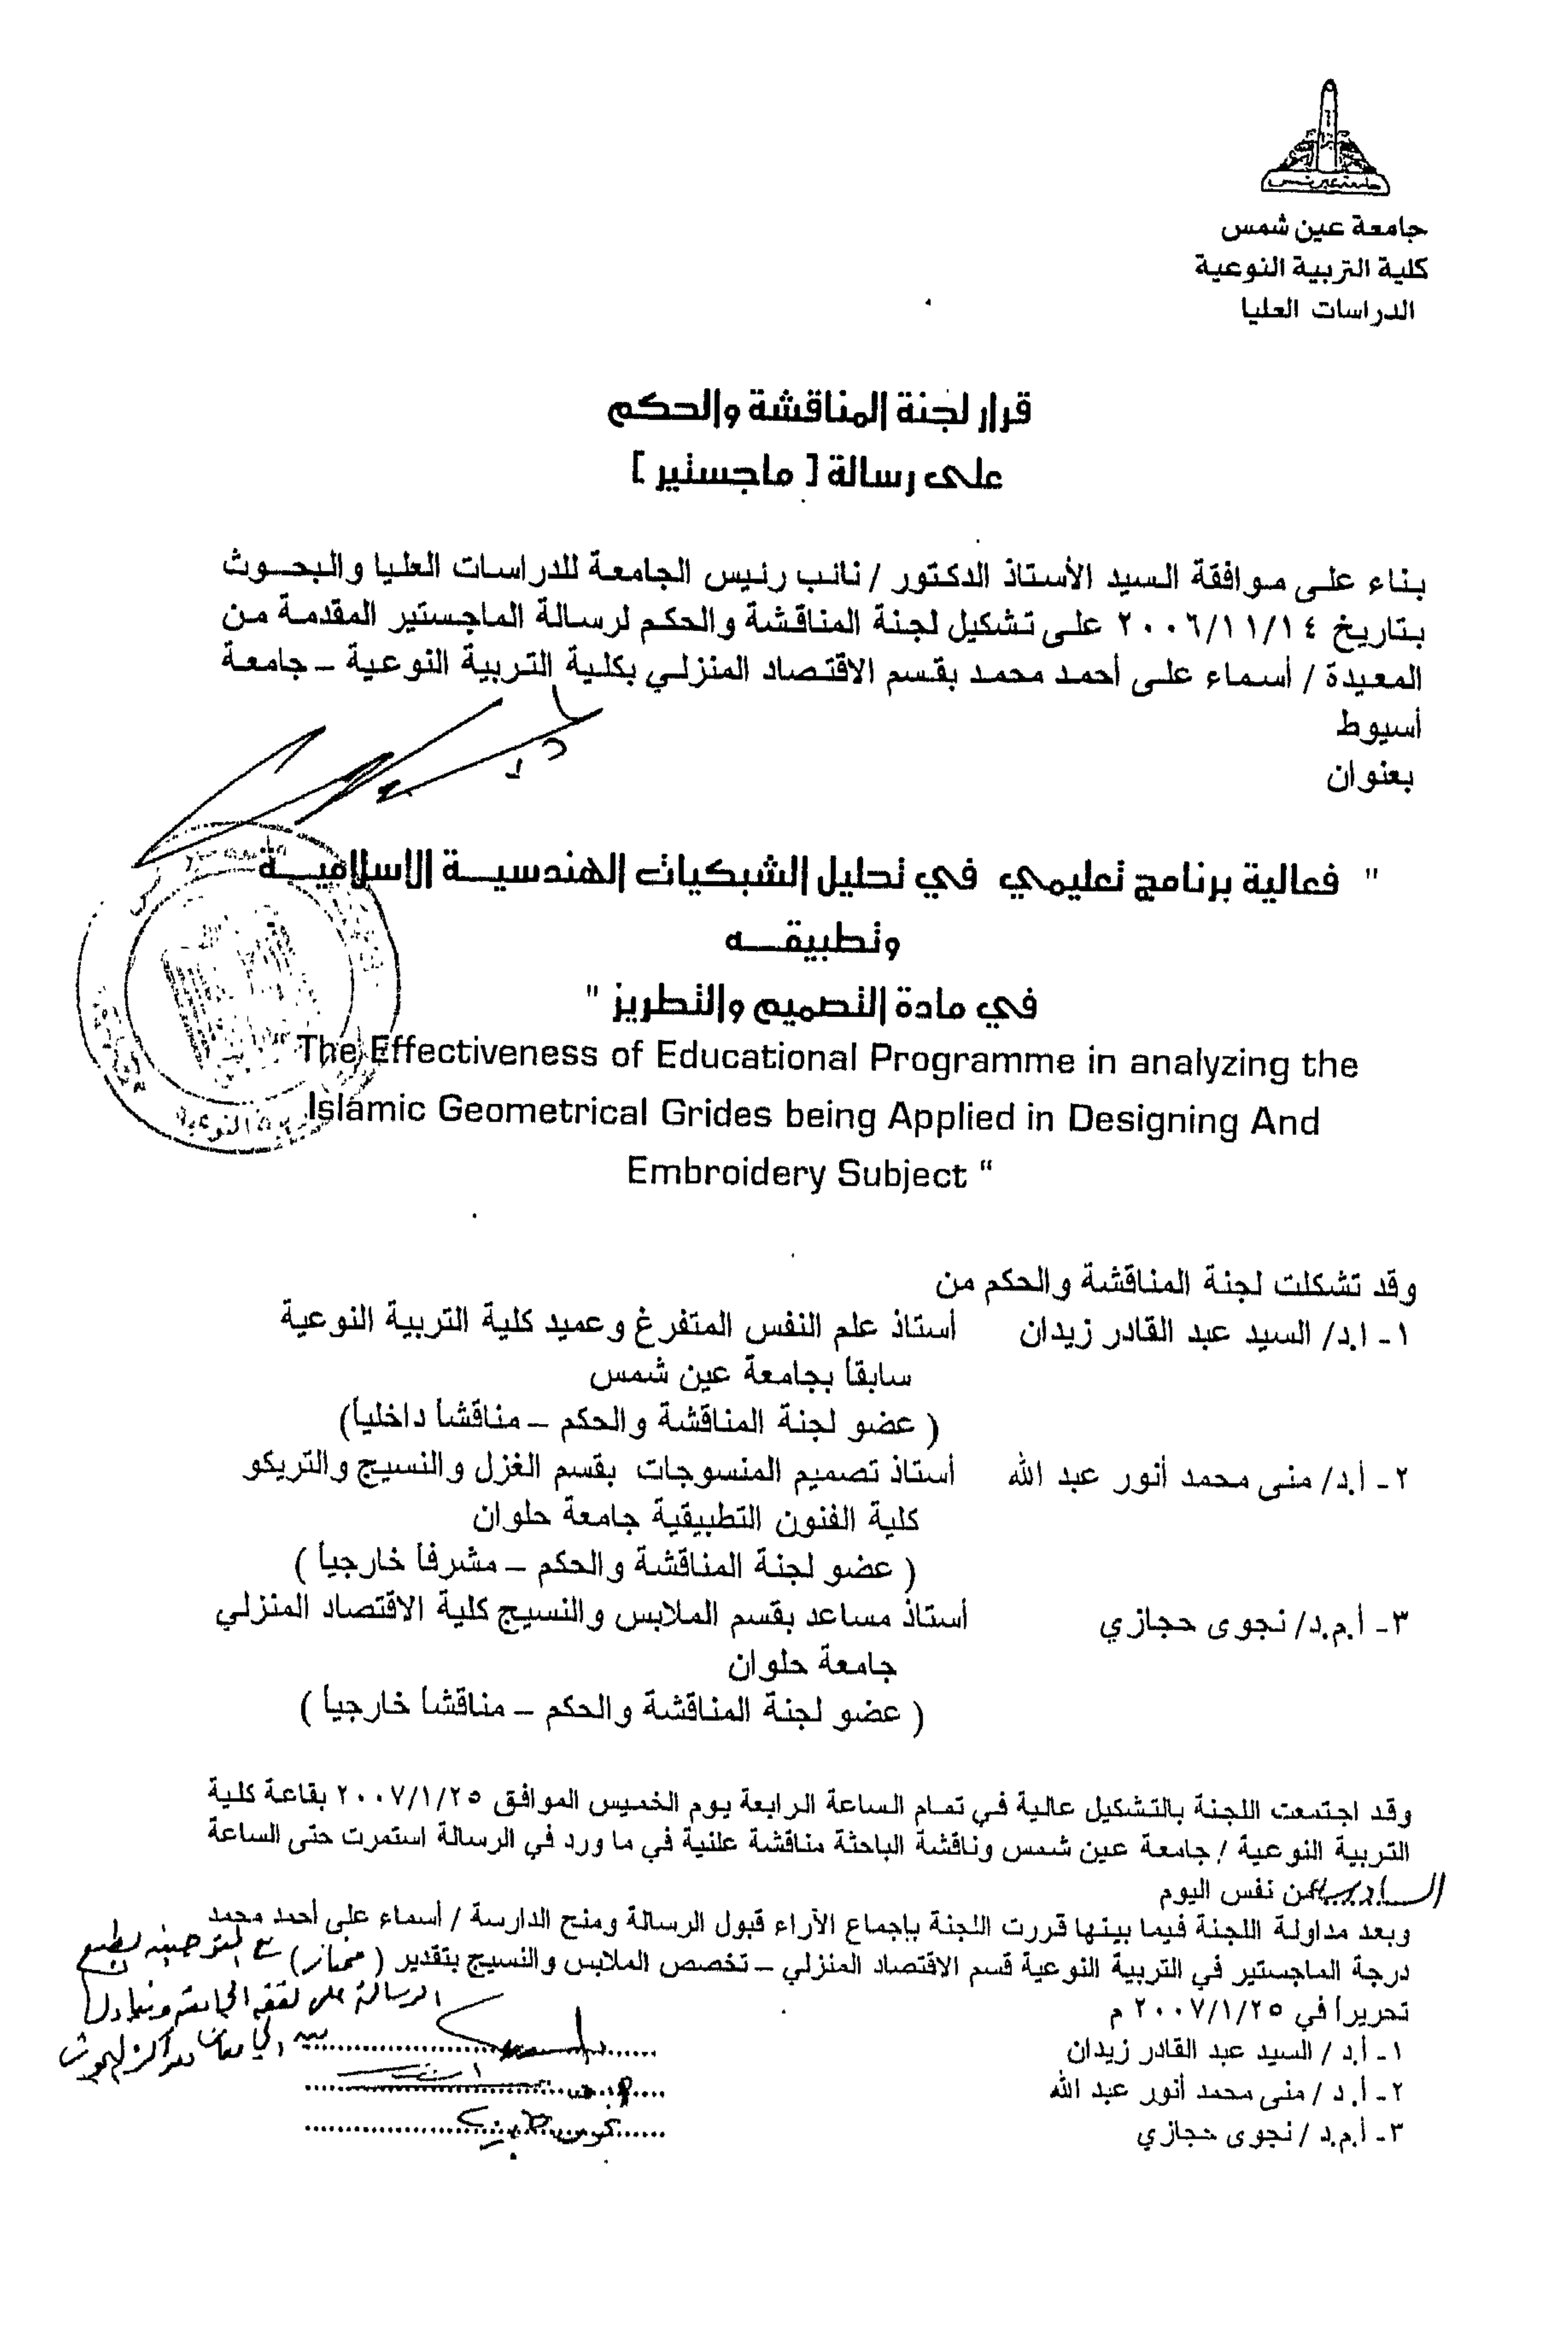 جامعة عين شمس
جامعة عين شمس
كلية التربية النوعية
الدراسات العليا
قرار لجنة المناقشة والحكم
على رسالة [ ماجستير ]
بناء على موافقة السيد الأستاذ الدكتور / نائب رئيس الجامعة للدراسات العليا والبحوث
بتاريخ ٢٠٠٦/١١/١٤ على تشكيل لجنة المناقشة والحكم لرسالة الماجستير المقدمة من
المعيدة / أسماء على أحمد محمد بقسم الاقتصاد المنزلي بكلية التربية النوعية – جامعة
أسيوط
بعنوان
" فعالية برنامج تعليمي في تحليل الشبكيات الهندسية الإسلامية
وتطبيقه
في مادة التصميم والتطريز "
“ The Effectiveness of Educational Programme in analyzing the
Islamic Geometrical Grides being Applied in Designing And
Embroidery Subject “
النوعية
وقد تشكلت لجنة المناقشة والحكم من
١- ا.د/ السيد عبد القادر زيدان أستاذ علم النفس المتفرغ وعميد كلية التربية النوعية
سابقاً بجامعة عين شمس
( عضو لجنة المناقشة والحكم – مناقشاً داخلياً)
٢- أ.د/ منى محمد أنور عبد الله أستاذ تصميم المنسوجات بقسم الغزل والنسيج والتريكو
كلية الفنون التطبيقية جامعة حلوان
( عضو لجنة المناقشة والحكم – مشرفاً خارجياً )
٣- أ.م.د/ نجوى حجازي أستاذ مساعد بقسم الملابس والنسيج كلية الاقتصاد المنزلي
جامعة حلوان
( عضو لجنة المناقشة والحكم – مناقشاً خارجياً )
وقد اجتمعت اللجنة بالتشكيل عالية في تمام الساعة الرابعة يوم الخميس الموافق ٢٠٠٧/١/٢٥ بقاعة كلية
التربية النوعية / جامعة عين شمس وناقشة الباحثة مناقشة علنية في ما ورد في الرسالة استمرت حتى الساعة
السادسة من نفس اليوم
وبعد مداولة اللجنة فيما بينها قررت اللجنة بإجماع الآراء قبول الرسالة ومنح الدارسة / أسماء على أحمد محمد
درجة الماجستير في التربية النوعية قسم الاقتصاد المنزلي – تخصص الملابس والنسيج بتقدير ( ممتاز ) مع التوصية بطبع
الرسالة على نفقة الجامعة وتبادلها
بين الجامعات ومراكز البحوث
تحريراً في ٢٠٠٧/١/٢٥ م
١- أ.د / السيد عبد القادر زيدان
٢- أ.د / منى محمد أنور عبد الله
٣- أ.م.د / نجوى حجازي